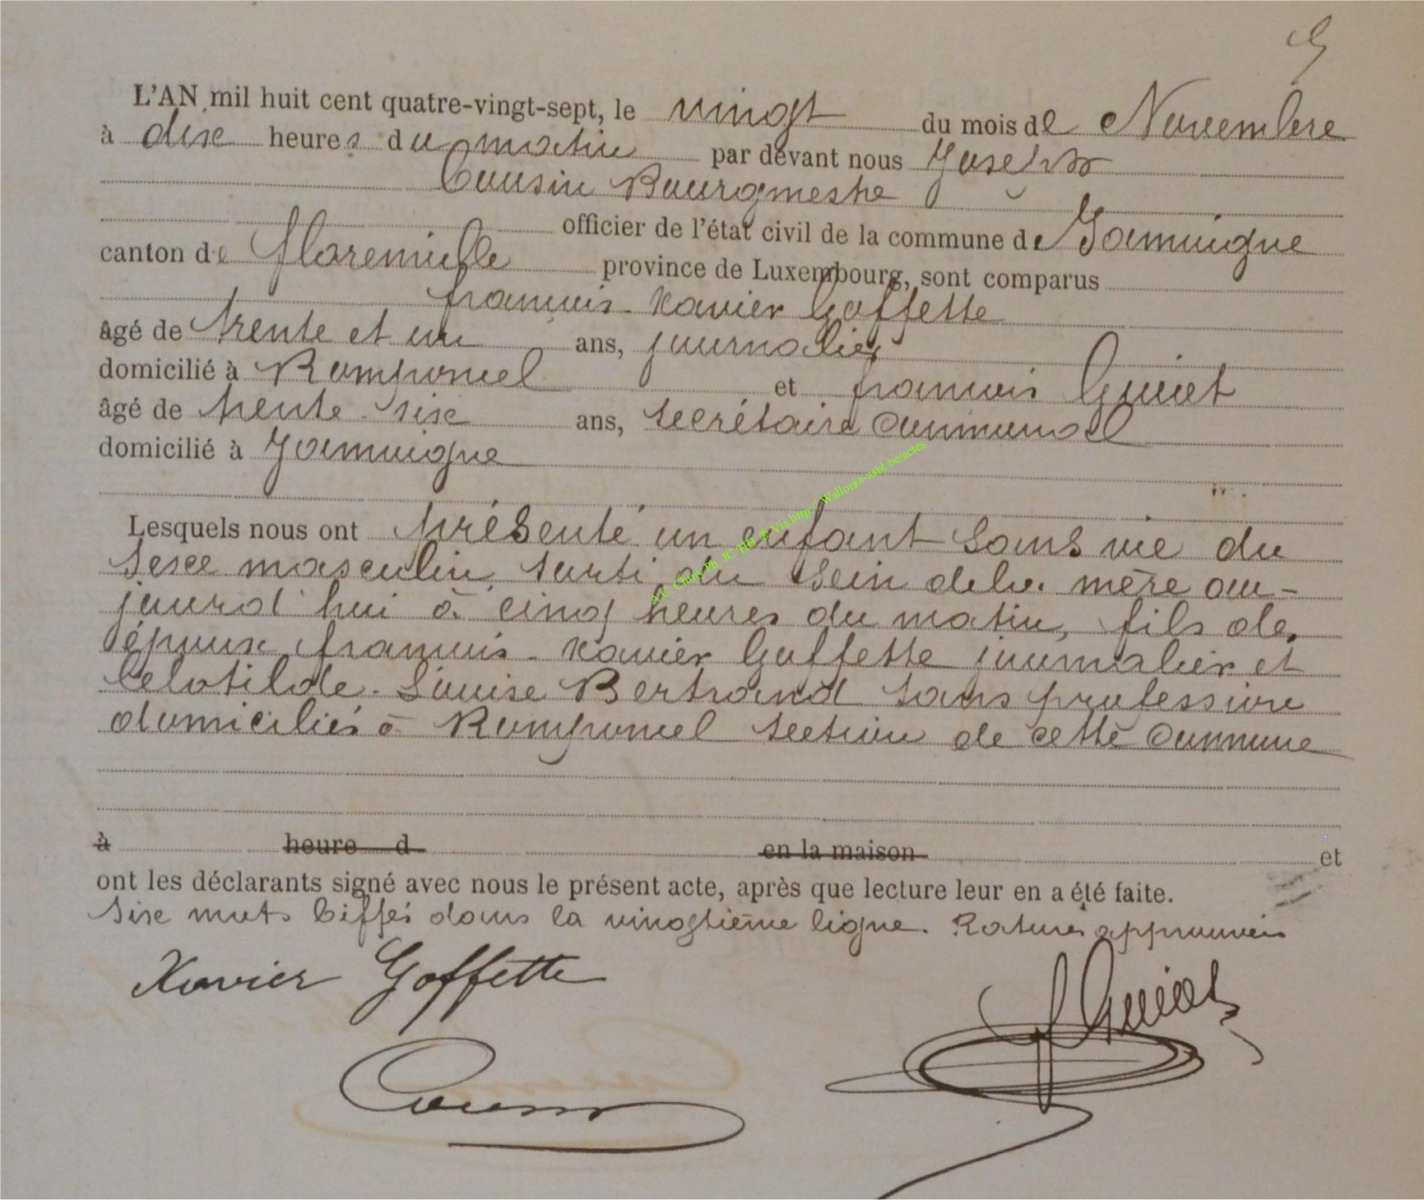 L'AN mil huit cent quatre-vingt-sept, le vingt du mois de Novembre
à dix heures du matin par devant nous Joseph
Cousin Bourgmestre
officier de l'état civil de la commune de Jamoigne
canton de florenville province de Luxembourg, sont comparus
françois-Xavier Goffette
âgé de trente et un ans, journalier
domicilié à Romponcel et françois Guiot
âgé de trente-six ans, secrétaire communal
domicilié à Jamoigne
Lesquels nous ont présenté un enfant sans vie du
sexe masculin, sorti du sein de la mère au-
jourd'hui à cinq heures du matin, fils des
époux françois-Xavier Goffette journalier et
Clotilde-Louise Bertrand sans profession
domiciliés à Romponcel section de cette commune
à heure d en la maison et
ont les déclarants signé avec nous le présent acte, après que lecture leur en a été faite.
Six mots biffés dans la vingtième ligne. Ratures approuvées
Xavier Goffette
f Guiot
Cousin